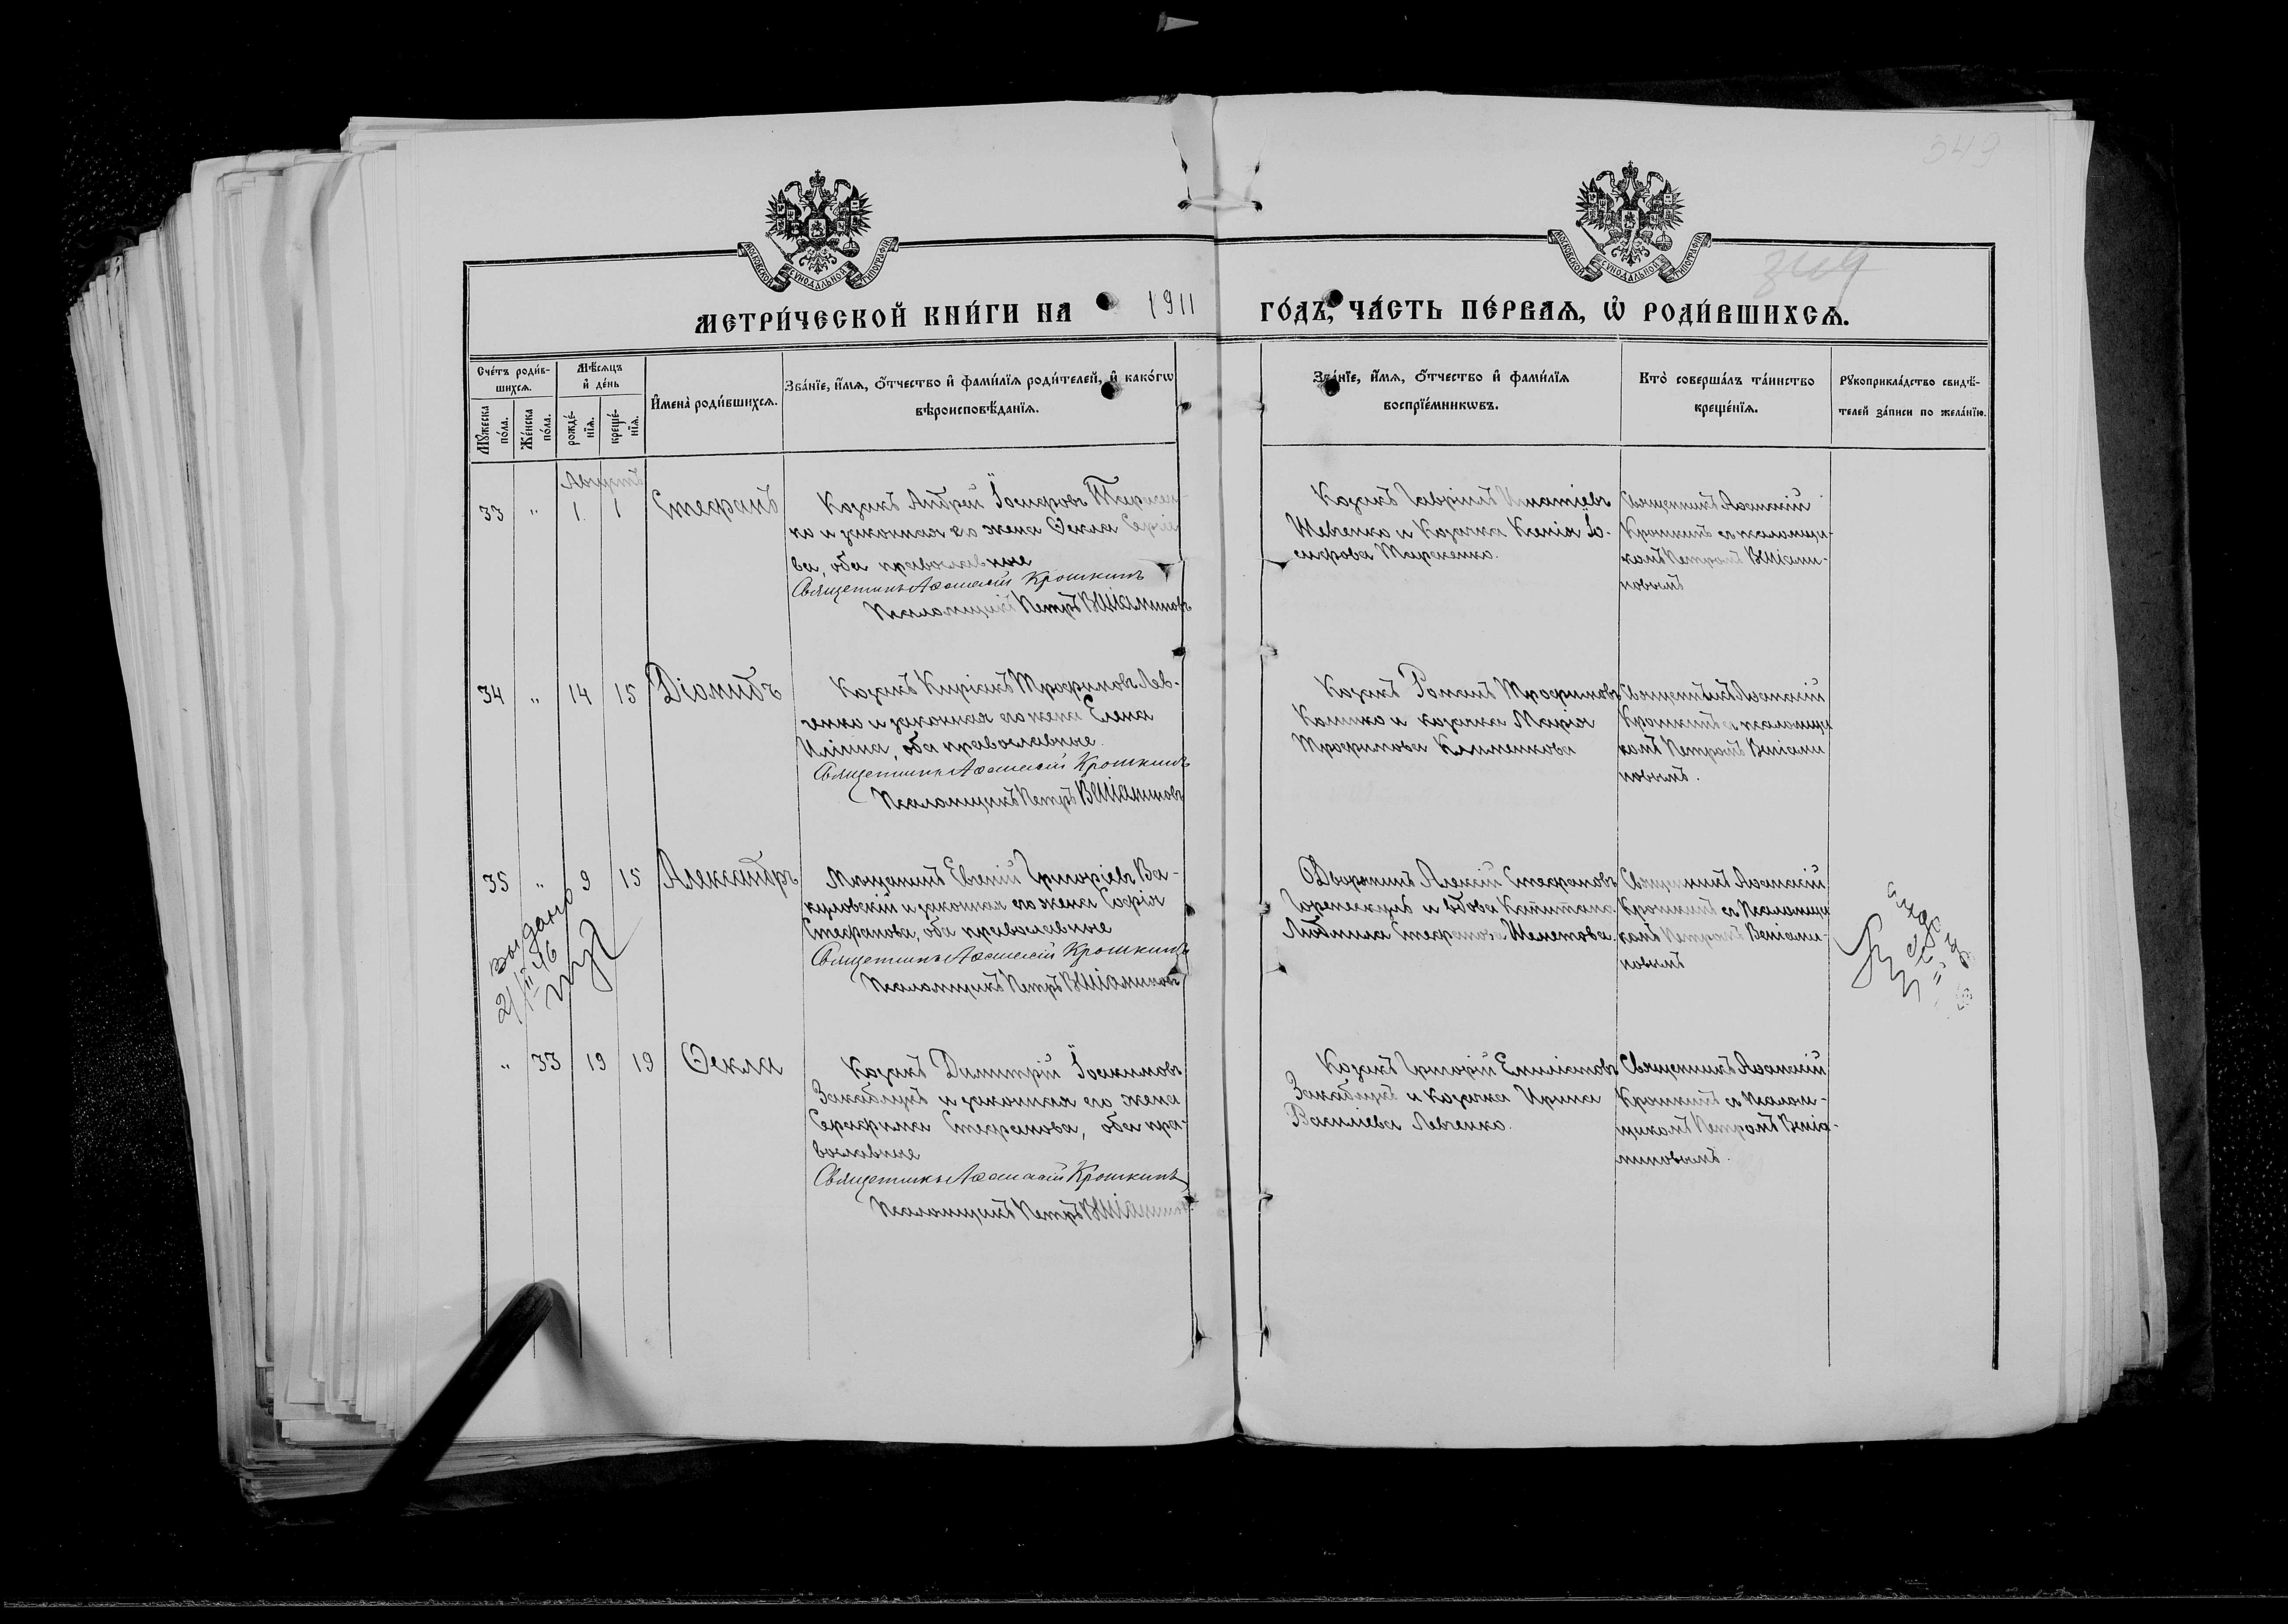 349
МОСКОВСКОЙ СѴНОДАЛЬНОЙ ТИПОГРАФІИ
МОСКОВСКОЙ СѴНОДАЛЬНОЙ ТИПОГРАФІИ
МЕТРИ́ЧЕСКОЙ КНИ́ГИ НА 1911 ГО́ДЪ, ЧА́СТЬ ПЕ́РВАѦ, Ѡ҆ РОДИ́ВШИХСѦ.
Сче́тъ роди́в-
шихсѧ.
Мѣ́сѧцъ
и҆ де́нь
Мꙋ́жеска
по́ла.
Же́нска
по́ла.
рожде́-
нїѧ.
креще́-
нїѧ.
И҆мена̀ роди́вшихсѧ.
Зва́нїе, и҆́мѧ, ѻ҆́тчество и҆ фами́лїѧ роди́телей, и҆ како́гѡ
вѣроисповѣ́данїѧ.
Зва́нїе, и҆́мѧ, ѻ҆́тчество и҆ фами́лїѧ
воспрїе́мникѡвъ.
Кто̀ соверша́лъ та́инство
креще́нїѧ.
Рꙋкоприкла́дство свидѣ́-
телей за́писи по жела́нїю.
Августъ
33 " 1. 1 Стефанъ
Козакъ Андрей Іосифовъ Тарасен-
ко и законная его жена Ѳекла Сергіе
ва, оба православные
Священникъ Аѳанасій Крошкинъ
Псаломщикъ Петръ Веніаминовъ
Козакъ Гавріилъ Игнатіевъ
Шевченко и Козачка Ксенія Іо-
сифова Тарасенко.
Священникъ Аѳанасій
Крошкинъ съ псаломщи-
комъ Петромъ Веніами-
новымъ
34 " 14 15 Діомидъ
Козакъ Киріакъ Трофимовъ Лев-
ченко и законная его жена Елена
Иліина, оба православные.
Священникъ Аѳанасій Крошкинъ
Псаломщикъ Петръ Веніаминовъ
Козакъ Романъ Трофимовъ
и козачка Марія
Трофимова Клименкова
Священникъ Аѳанасій
Крошкинъ съ псаломщи
комъ Петромъ Веніами
новымъ.
35 " 9 15 Александръ
Мѣщанинъ Евгеній Григоріевъ Ва-
куловскій и законная его жена Софія
Стефанова, оба православные
Священникъ Аѳанасій Крошкинъ
Псаломщикъ Петръ Веніаминовъ
Дворянинъ Алексій Стефановъ
и вдова Капитана
Людмила Стефанова Шеметова.
Священникъ Аѳанасій
Крошкинъ съ Псаломщи
комъ Петромъ Веніами-
новымъ
выдано
21/II 46
" 33 19 19 Ѳекла
Козакъ Димитрій Іоакимовъ
Закаблукъ и законная его жена
Серафима Стефанова, оба пра-
вославные
Священникъ Аѳанасій Крошкинъ
Псаломщикъ Петръ Веніаминовъ
Козакъ Григорій Емиліановъ
Закаблукъ и козачка Ирина
Василіева Левченко.
Священникъ Аѳанасій
Крошкинъ съ Псалом-
щикомъ Петромъ Веніа-
миновымъ.